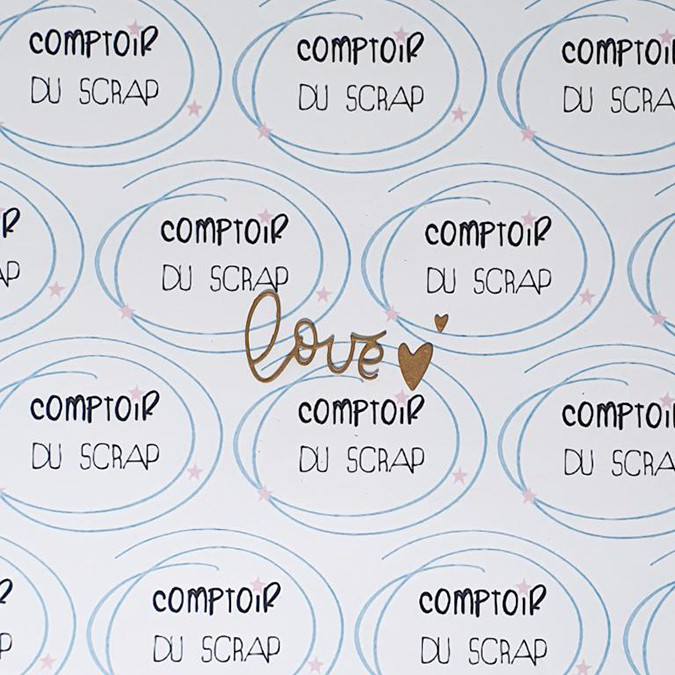 COMPTOIR
DU SCRAP
COMPTOIR
DU SCRAP
COMPTOI
DU SCRA
R
AP
COMPTOIR
DU SCRAP
COMPTOIR
DU SCRAP
love
COMPTOIR
DU SCRAP
COMPTOIR
DU SCRAP
COMPTOI
DU SCRA
P
COMPTOIR
DU SCRAP
COMPTOIR
DU SCRAP